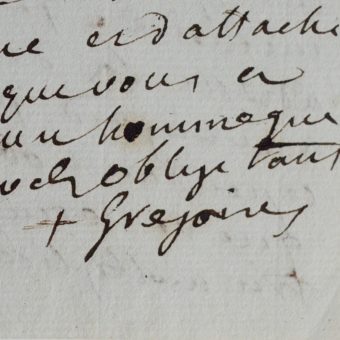 ue et d'attache
que vous a
un homme que
oblige tant
+ Gregoire